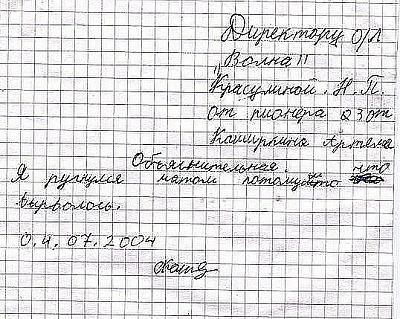 Директору О/Л
„Волна"
Красулиной. Н. П.
от пионера 2 3 от
Каширкина Артема
Объяснительная.
Я ругнулся матом потомушто что
вырволось.
0.4.07.2004